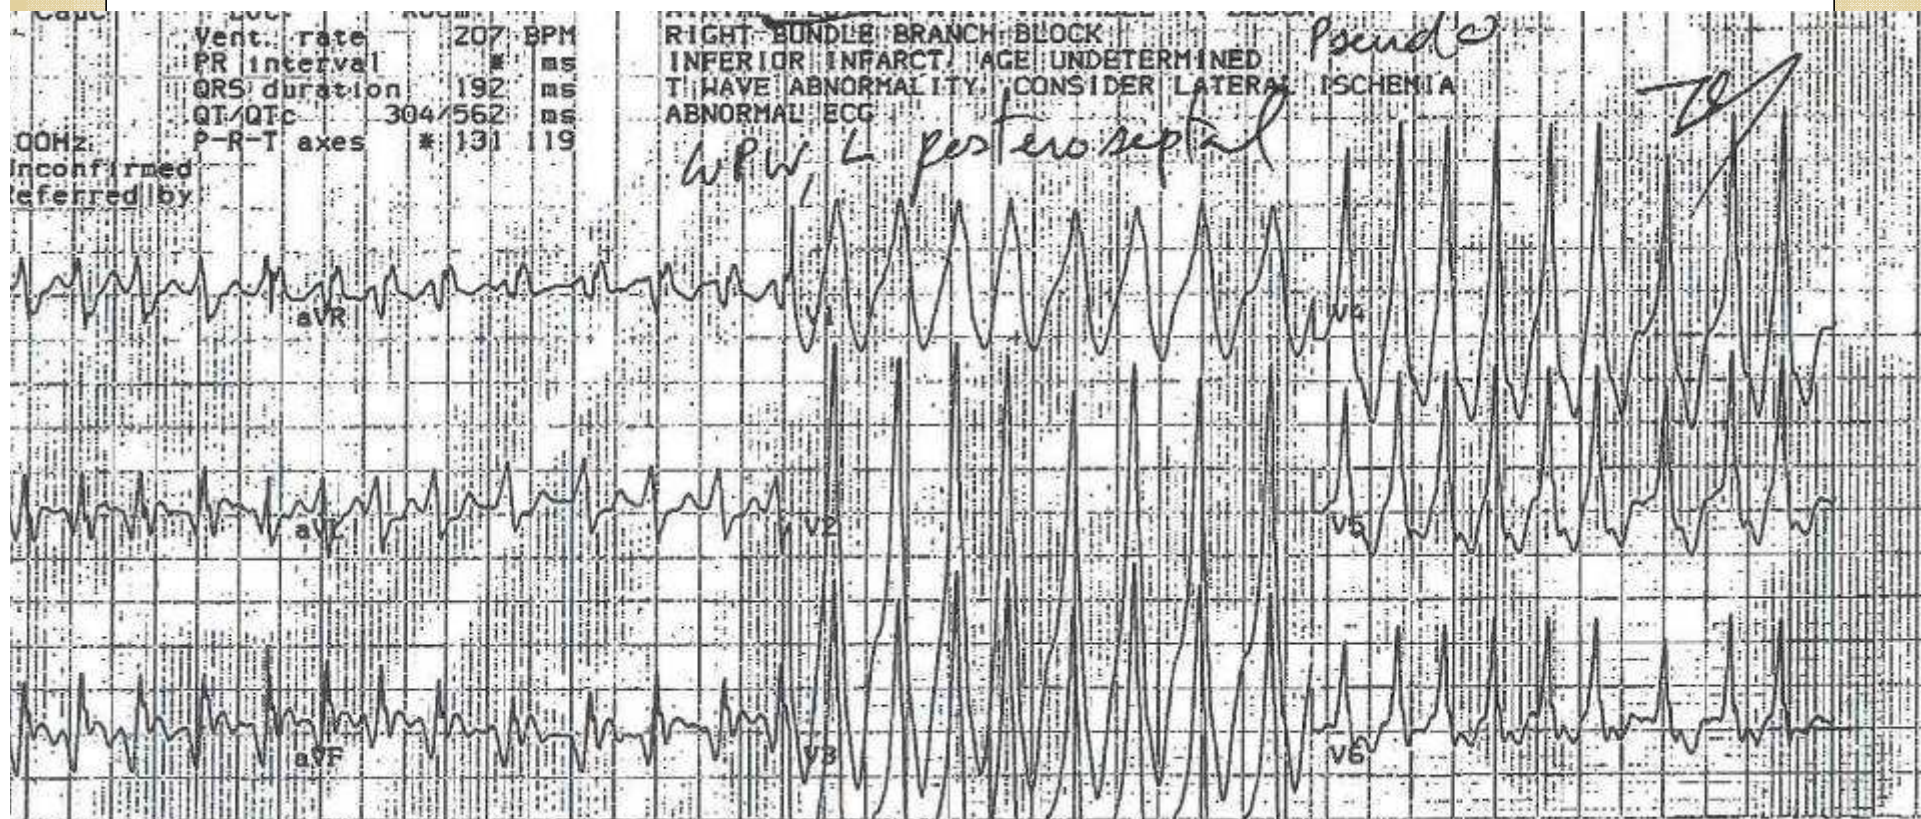 Vent. rate 207 BPM
PR interval * ms
QRS duration 192 ms
QT/QTc 304/562 ms
P-R-T axes * 131 119
00Hz
Unconfirmed
eferred by
RIGHT BUNDLE BRANCH BLOCK
INFERIOR INFARCT, AGE UNDETERMINED
T WAVE ABNORMALITY, CONSIDER LATERAL ISCHEMIA
ABNORMAL ECG
Pseudo
WPW, L posteroseptal
aVR V1 V4
aVL V2 V5
aVF V3 V6